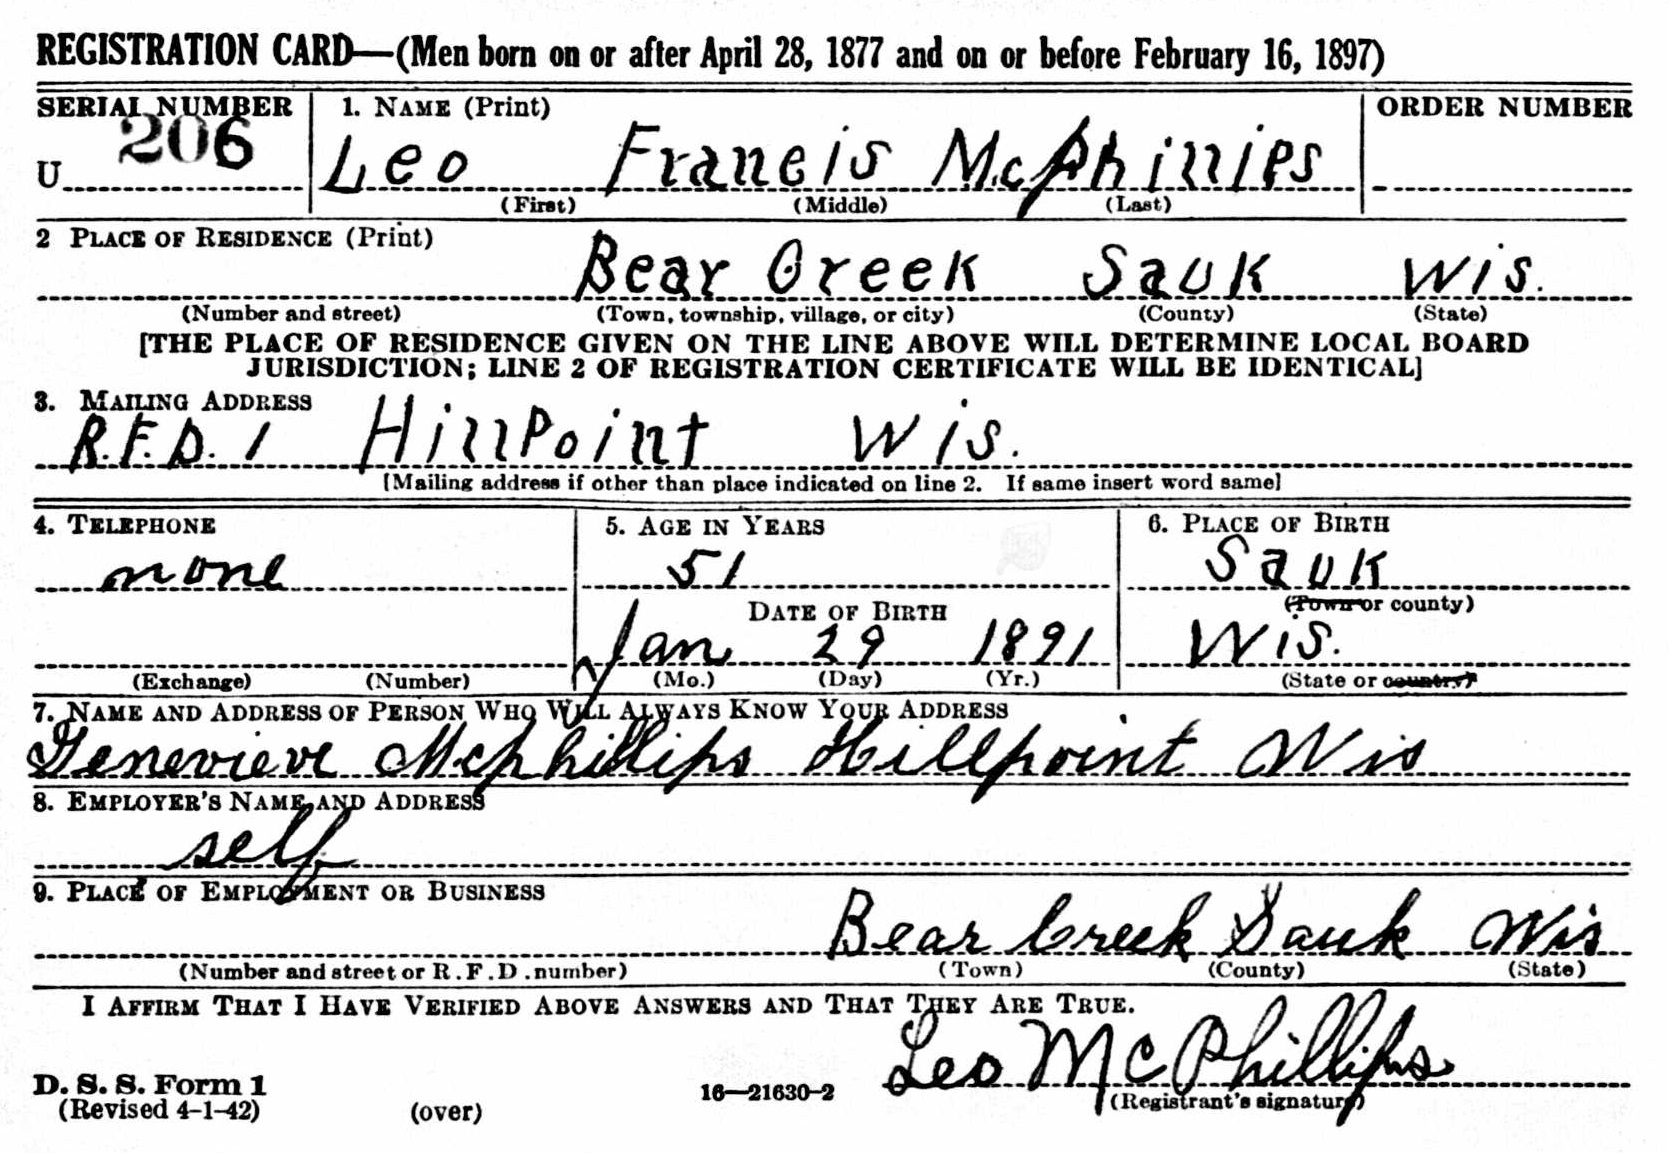 REGISTRATION CARD—(Men born on or after April 28, 1877 and on or before February 16, 1897)
SERIAL NUMBER 1. NAME (Print) ORDER NUMBER
U 206 Leo Francis McPhillips
(First) (Middle) (Last)
2 PLACE OF RESIDENCE (Print)
Bear Creek Sauk Wis.
(Number and street) (Town, township, village, or city) (County) (State)
[THE PLACE OF RESIDENCE GIVEN ON THE LINE ABOVE WILL DETERMINE LOCAL BOARD
JURISDICTION; LINE 2 OF REGISTRATION CERTIFICATE WILL BE IDENTICAL]
3. MAILING ADDRESS
R.F.D. 1 HillPoint Wis.
[Mailing address if other than place indicated on line 2. If same insert word same]
4. TELEPHONE 5. AGE IN YEARS 6. PLACE OF BIRTH
none 51 Sauk
DATE OF BIRTH (Town or county)
Jan 29 1891 Wis.
(Exchange) (Number) (Mo.) (Day) (Yr.) (State or country)
7. NAME AND ADDRESS OF PERSON WHO WILL ALWAYS KNOW YOUR ADDRESS
Genevieve McPhillips Hillpoint Wis
8. EMPLOYER'S NAME AND ADDRESS
self
9. PLACE OF EMPLOYMENT OR BUSINESS
Bear Creek Sauk Wis
(Number and street or R.F.D. number) (Town) (County) (State)
I AFFIRM THAT I HAVE VERIFIED ABOVE ANSWERS AND THAT THEY ARE TRUE.
Leo McPhillips
D. S. S. Form 1 16—21630-2 (Registrant's signature)
(Revised 4-1-42) (over)